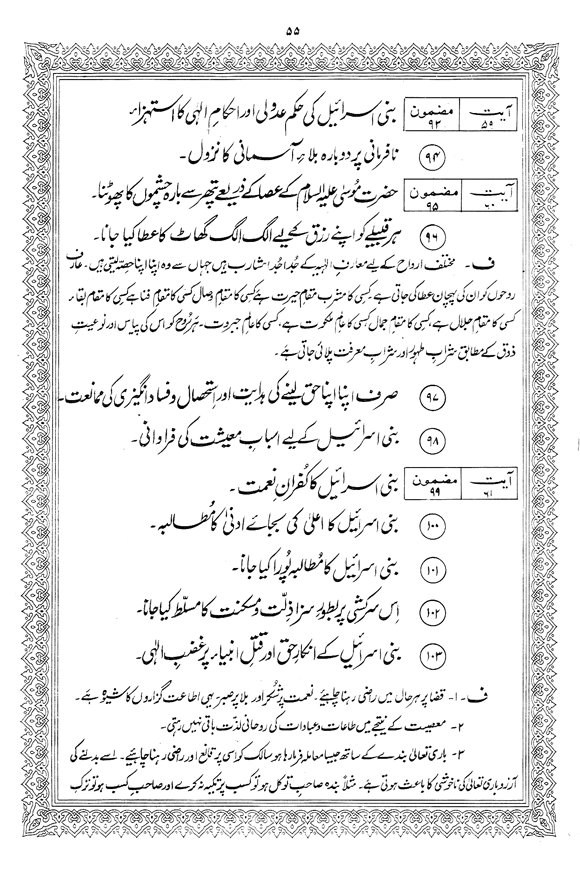 ۵۵
آیت ۵۹ مضمون ۹۳ بنی اسرائیل کی حکم عدولی اور احکامِ الٰہی کا استہزاء
۹۴ نافرمانی پر دوبارہ بلائے آسمانی کا نزول۔
آیت ۶۰ مضمون ۹۵ حضرت موسیٰ علیہ السلام کے عصا کے ذریعے پتھر سے بارہ چشموں کا پھوٹنا۔
۹۶ ہر قبیلے کو اپنے رزق کے لیے الگ الگ گھاٹ کا عطا کیا جانا۔
ف۔ مختلف ارواح کے لیے معارفِ الٰہیہ کے جُدا جُدا مشارب ہیں جہاں سے وہ اپنا اپنا حصہ لیتی ہیں۔ عارف
روحوں کو ان کی پہچان عطا کی جاتی ہے کسی کا مشرب مقامِ حیرت ہے کسی کا مقامِ وصال کسی کا مقامِ فنا ہے کسی کا مقامِ بقاء
کسی کا مقامِ جلال ہے، کسی کا مقامِ جمال کسی کا عالمِ ملکوت ہے، کسی کا عالمِ جبروت۔ ہر رُوح کو اس کی پیاس اور نوعیتِ
ذوق کے مطابق شرابِ طہور اور شرابِ معرفت پلائی جاتی ہے۔
۹۷ صرف اپنا اپنا حق لینے کی ہدایت اور استحصال و فساد انگیزی کی ممانعت۔
۹۸ بنی اسرائیل کے لیے اسبابِ معیشت کی فراوانی۔
آیت ۶۱ مضمون ۹۹ بنی اسرائیل کا کُفرانِ نعمت۔
۱۰۰ بنی اسرائیل کا اعلیٰ کی بجائے ادنیٰ کا مُطالبہ۔
۱۰۱ بنی اسرائیل کا مُطالبہ پُورا کیا جانا۔
۱۰۲ اِس سرکشی پر بطورِ سزا ذِلّت و مسکنت کا مسلّط کیا جانا۔
۱۰۳ بنی اسرائیل کے انکارِ حق اور قتلِ انبیاء پر غضبِ الٰہی۔
ف۔ ۱۔ قضا پر ہر حال میں راضی رہنا چاہیئے۔ نعمت پر شُکر اور بلا پر صبر ہی اطاعت گزاروں کا شیوہ ہے۔
۲۔ معصیت کے نتیجے میں طاعات و عبادات کی روحانی لذّت باقی نہیں رہتی۔
۳۔ باری تعالیٰ بندے کے ساتھ جیسا معاملہ فرما رہا ہو سالک کو اسی پر قانع اور راضی رہنا چاہیئے۔ اسے بدلنے کی
آرزو باری تعالیٰ کی ناخوشی کا باعث ہوتی ہے۔ مثلاً بندہ صاحبِ توکل ہو تو کسب پر تکیہ نہ کرے اور صاحبِ کسب ہو تو ترک